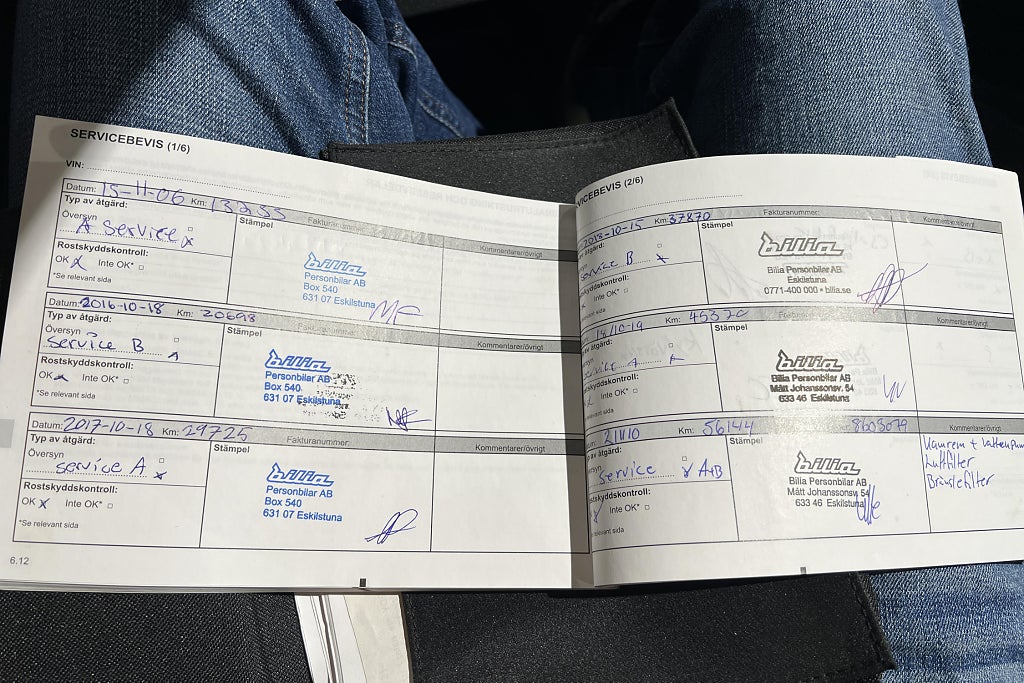 SERVICEBEVIS (1/6)
VIN:
Datum: 15-11-06 Km: 13255
Typ av åtgärd:
Stämpel
Kommentarer/övrigt
Översyn
A Service x
Rostskyddskontroll:
OK x Inte OK*
*Se relevant sida
bilia
Personbilar AB
Box 540
631 07 Eskilstuna
Datum: 2016-10-18 Km: 20698 Fakturanummer:
Typ av åtgärd:
Stämpel
Kommentarer/övrigt
Översyn
Service B
Rostskyddskontroll:
OK Inte OK*
*Se relevant sida
bilia
Personbilar AB
Box 540
631 07 Eskilstuna
Datum: 2017-10-18 Km: 29725 Fakturanummer:
Typ av åtgärd:
Stämpel
Kommentarer/övrigt
Översyn
service A x
Rostskyddskontroll:
OK x Inte OK*
*Se relevant sida
bilia
Personbilar AB
Box 540
631 07 Eskilstuna
6.12
VICEBEVIS (2/6)
2018-10-15 Km: 37870 Fakturanummer:
åtgärd:
Stämpel
Kommentarer/övrigt
Service B x
kyddskontroll:
Inte OK*
relevant sida
bilia
Bilia Personbilar AB
Eskilstuna
0771-400 000 • bilia.se
14/10-19 Km: 45320
av åtgärd:
Stämpel
Kommentarer/övrigt
A
kyddskontroll:
Inte OK*
relevant sida
bilia
Bilia Personbilar AB
Mått Johanssonsv. 54
633 46 Eskilstuna
Km: 56144 8603079
av åtgärd:
Stämpel
Kommentarer/övrigt
ersyn
service x A+B
ostskyddskontroll:
Inte OK*
e relevant sida
bilia
Bilia Personbilar AB
Mått Johanssonsv 54
633 46 Eskilstuna
Kamrem + Vattenpum
Luftfilter
Bränslefilter